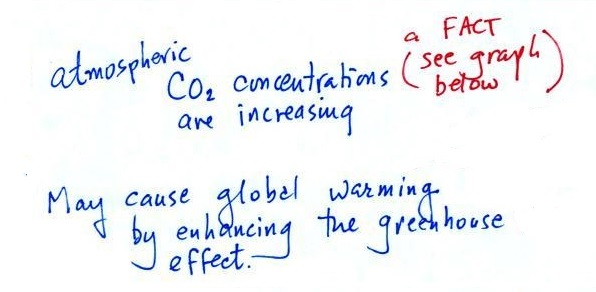 atmospheric
CO₂ concentrations
are increasing
a FACT
(see graph
below)
May cause global warming
by enhancing the greenhouse
effect.